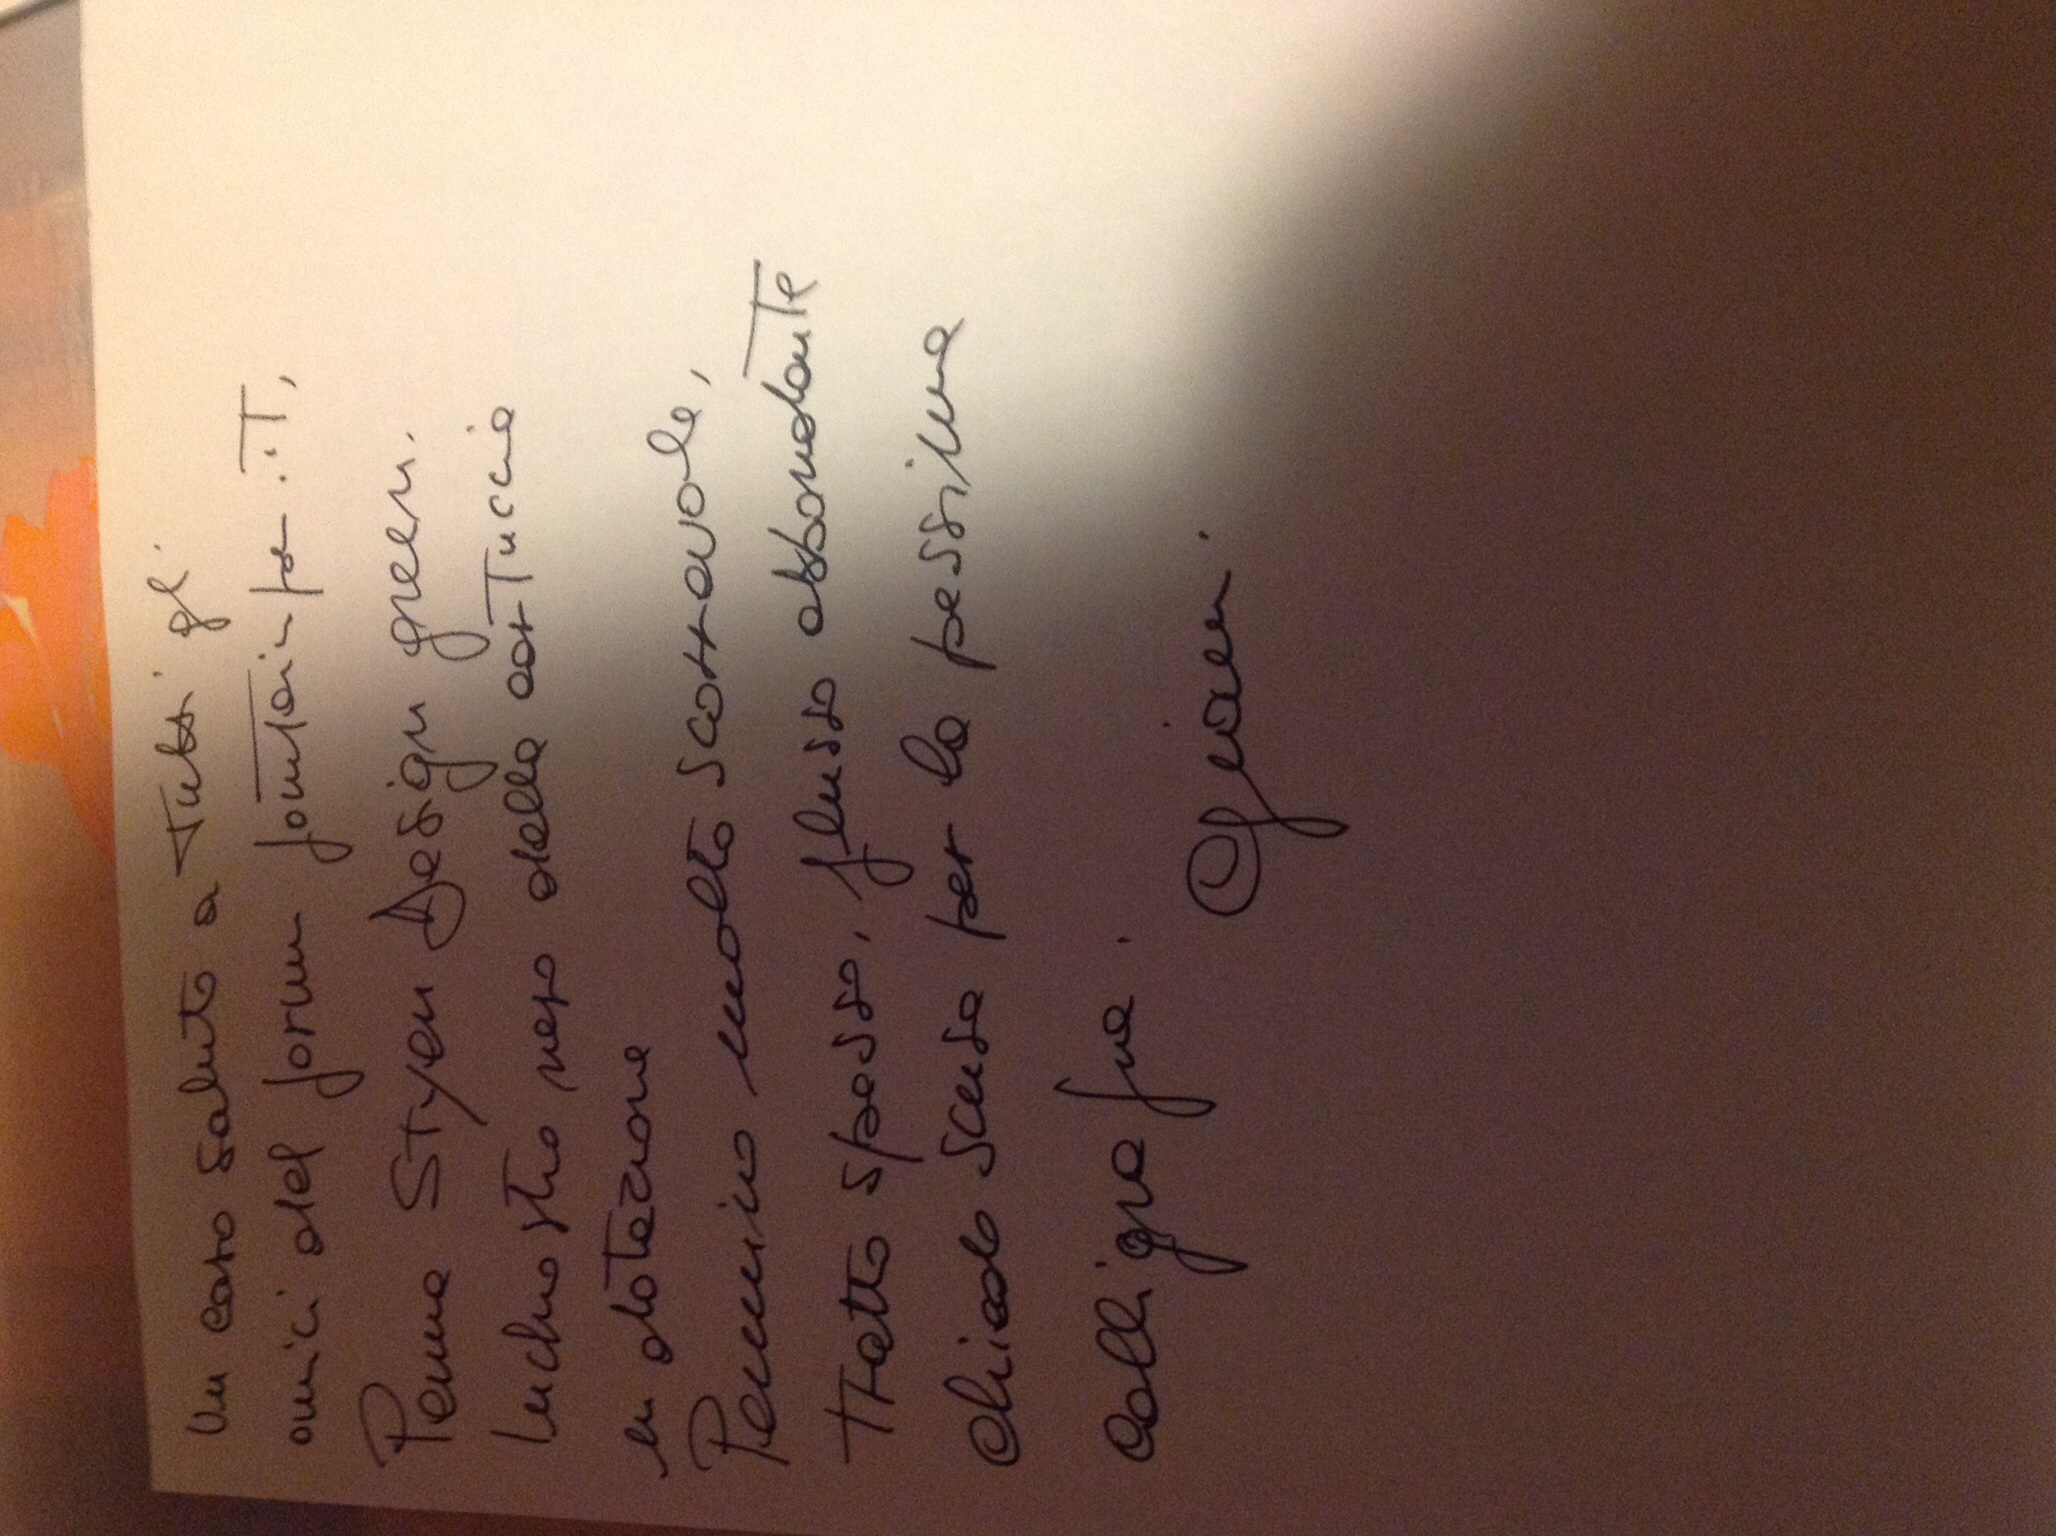 Un caro saluto a Tutti gli
amici del forum fountainpen.it,
Penna Styen Design green.
Inchiostro nero della cartuccia
in dotazione
Pennino molto scorrevole,
tratto spesso, flusso abbondante
chiedo scusa per la pessima
calligrafia.